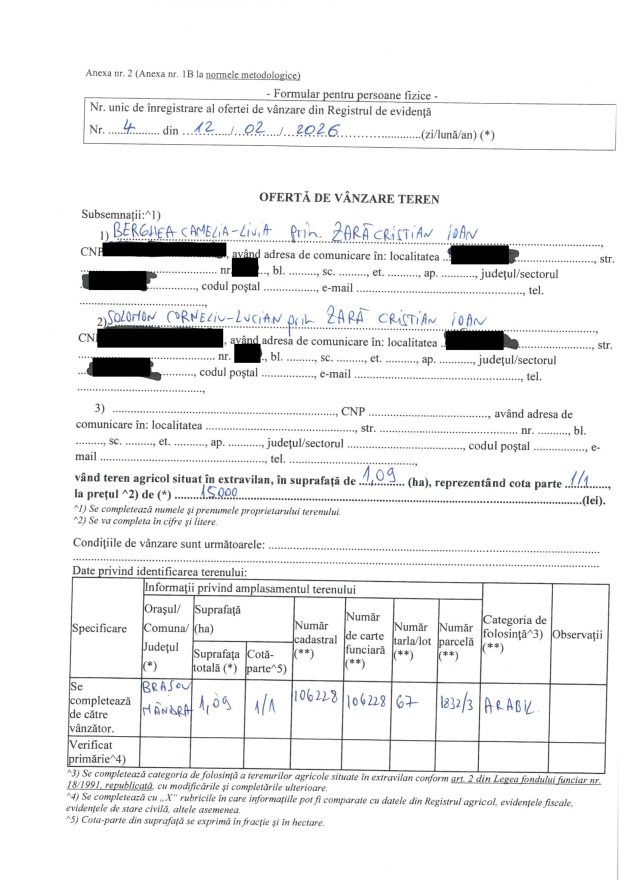 Anexa nr. 2 (Anexa nr. 1B la normele metodologice)
- Formular pentru persoane fizice -
Nr. unic de înregistrare al ofertei de vânzare din Registrul de evidență
Nr. .....4............. din ....12...../....02....../....2026.............................(zi/lună/an) (*)
OFERTĂ DE VÂNZARE TEREN
Subsemnații:^1)
1) BERGHEA CAMELIA-LIVIA prin ZARĂ CRISTIAN IOAN
CNP , având adresa de comunicare în: localitatea .. , str.
nr. .., bl. ........, sc. ........, et. ........, ap. .........., județul/sectorul
, codul poștal ..............., e-mail ................................................, tel.
......................................,
2) SOLOMON CORNELIU-LUCIAN prin ZARĂ CRISTIAN IOAN
CN , având adresa de comunicare în: localitatea .. , str.
nr. .., bl. ........, sc. ........, et. ........, ap. .........., județul/sectorul
... , codul poștal ..............., e-mail ................................................, tel.
......................................,
3) ................................................................, CNP .................................., având adresa de
comunicare în: localitatea ................................., str. ...................................... nr. .........., bl.
........, sc. ........, et. ........., ap. .........., județul/sectorul ................................, codul poștal .............., e-
mail ............................................, tel. ..........................................
vând teren agricol situat în extravilan, în suprafață de ....1,09.... (ha), reprezentând cota parte ...1/1.....,
la prețul ^2) de (*) ........15000..............................................................................(lei).
^1) Se completează numele și prenumele proprietarului terenului.
^2) Se va completa în cifre și litere.
Condițiile de vânzare sunt următoarele: ................................................................................
................................................................................................................................
Date privind identificarea terenului:
Informații privind amplasamentul terenului
Specificare
Orașul/ Comuna/ Județul (*)
Suprafață (ha)
Suprafața totală (*)
Cotă-parte^5)
Număr cadastral (**)
Număr de carte funciară (**)
Număr tarla/lot (**)
Număr parcelă (**)
Categoria de folosință^3) (**)
Observații
Se completează de către vânzător.
BRAȘOV MÂNDRA
1,09
1/1
106228
106228
67
1832/3
ARABIL
Verificat primărie^4)
^3) Se completează categoria de folosință a terenurilor agricole situate în extravilan conform art. 2 din Legea fondului funciar nr.
18/1991, republicată, cu modificările și completările ulterioare.
^4) Se completează cu „X“ rubricile în care informațiile pot fi comparate cu datele din Registrul agricol, evidențele fiscale,
evidențele de stare civilă, altele asemenea.
^5) Cota-parte din suprafață se exprimă în fracție și în hectare.